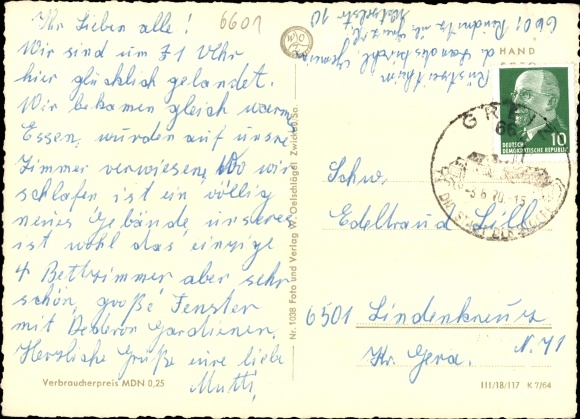 Ihr Lieben alle!
6601
Wir sind um ½1 Uhr
hier glücklich gelandet.
Wir bekamen gleich warm
Essen, wurden auf unsre
Zimmer verwiesen, Wo wir
schlafen ist ein völlig
neues Gebäude, unseres
ist wohl das einzige
4 Bettzimmer aber sehr
schön, große Fenster
mit Dederon Gardienen.
Herzliche Grüße eure liebe
Mutti
Verbraucherpreis MDN 0,25
Nr. 1038 Foto und Verlag W. Oelschlägel Zwickau/Sa.
Rüstzeitheim
d. Landeskirchl. Gemein
6601 Reudnitz ü. Greiz
HAND
DEUTSCHE
DEMOKRATISCHE REPUBLIK
10
GREIZ
66
-5.6.70.-15
Schw.
Edeltraud Lill
6501 Lindenkreuz
N. 71
Kr. Gera.
III/18/117 K 7/64